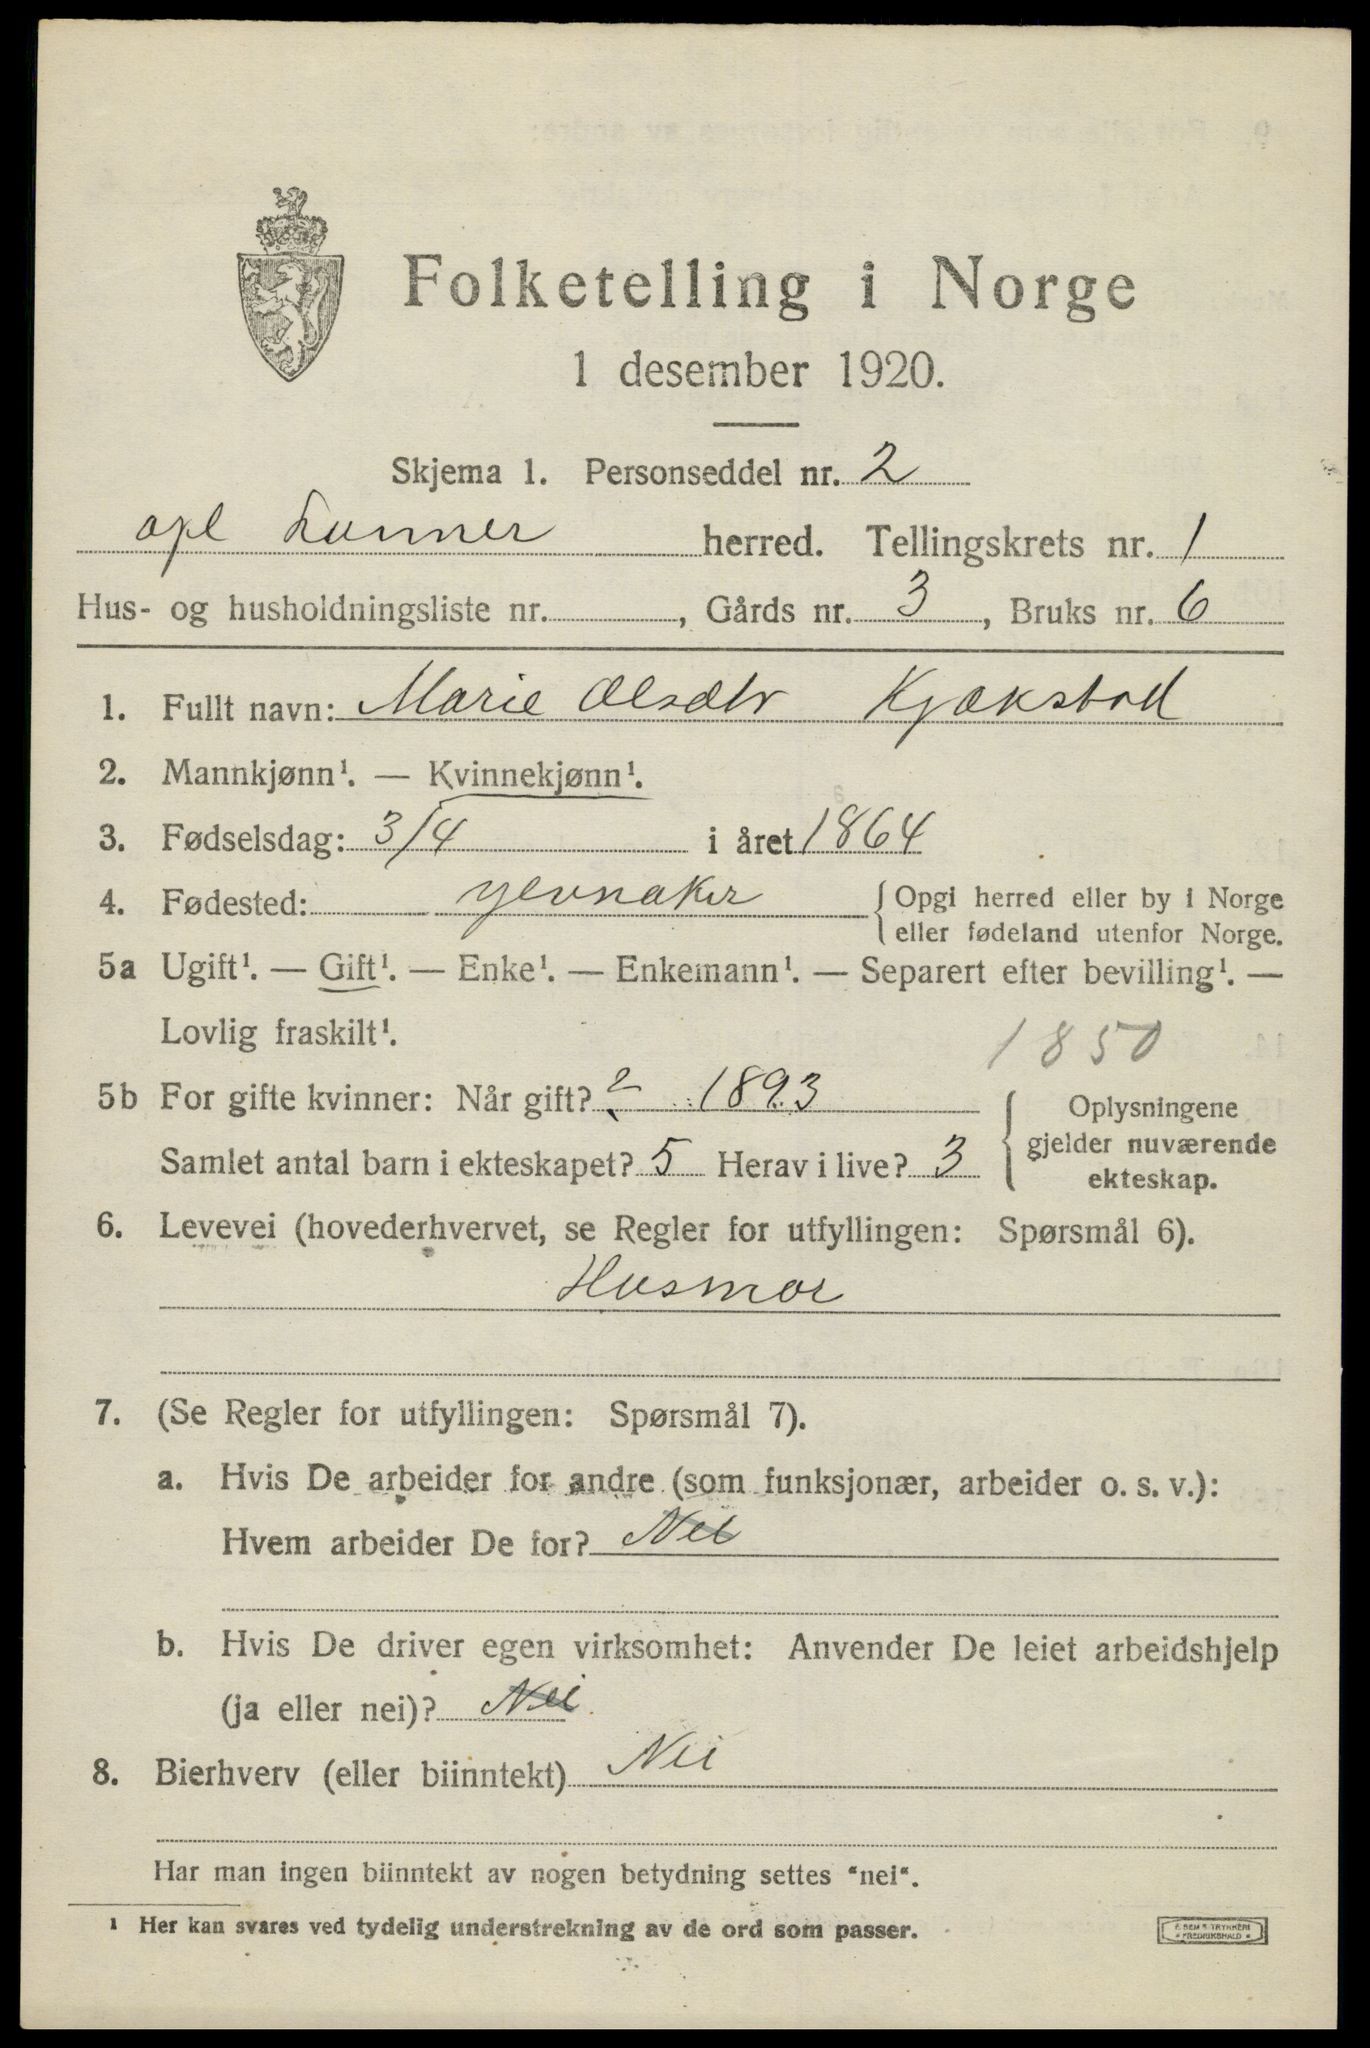 Folketelling i Norge
1 desember 1920.
Skjema 1. Personseddel nr. 2
opl Lunner herred. Tellingskrets nr. 1
Hus- og husholdningsliste nr. , Gårds nr. 3 , Bruks nr. 6
1. Fullt navn: Marie Olsdtr Kjekstad
2. Mannkjønn¹. — Kvinnekjønn¹.
3. Fødselsdag: 3/4 i året 1864
4. Fødested: Jevnaker { Opgi herred eller by i Norge
eller fødeland utenfor Norge.
5a Ugift¹. — Gift¹. — Enke¹. — Enkemann¹. — Separert efter bevilling¹. —
Lovlig fraskilt¹.
1850
5b For gifte kvinner: Når gift? ? 1893
Samlet antal barn i ekteskapet? 5 Herav i live? 3
{ Oplysningene
gjelder nuværende
ekteskap.
6. Levevei (hovederhvervet, se Regler for utfyllingen: Spørsmål 6).
Husmor
7. (Se Regler for utfyllingen: Spørsmål 7).
a. Hvis De arbeider for andre (som funksjonær, arbeider o. s. v.):
Hvem arbeider De for? Nei
b. Hvis De driver egen virksomhet: Anvender De leiet arbeidshjelp
(ja eller nei)? Nei
8. Bierhverv (eller biinntekt) Nei
Har man ingen biinntekt av nogen betydning settes "nei".
¹ Her kan svares ved tydelig understrekning av de ord som passer.
TRYKKERI
FREDRIKSHALD